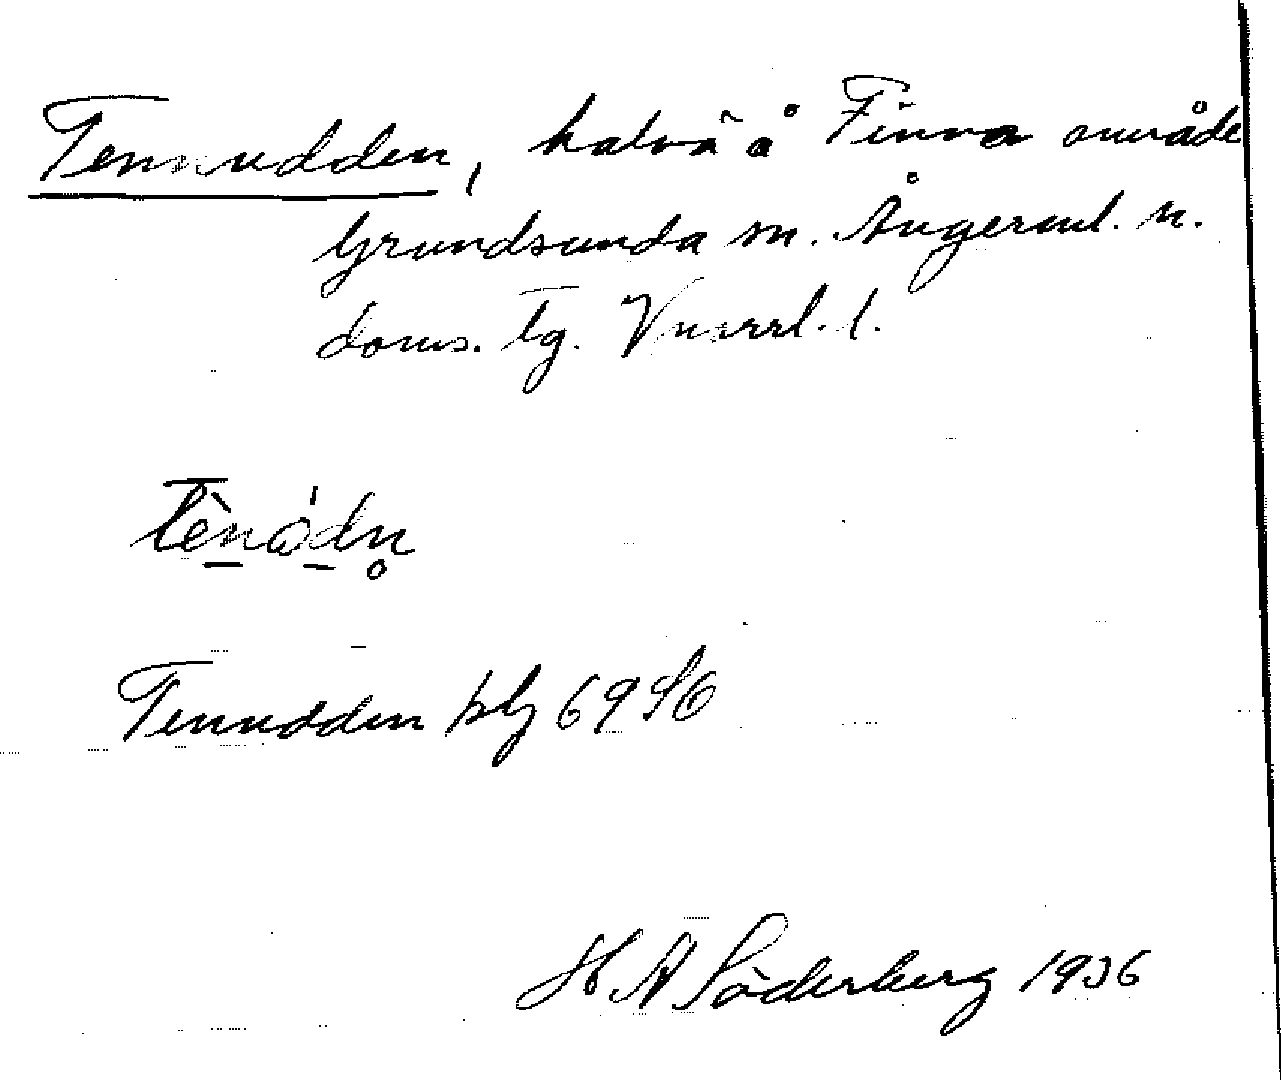 Tennudden, halvö å Finna område
Grundsunda sn. Ångerml. n.
doms. tg. Vnorrl. l.
tènòdn
Tenudden blz 69 SO
H A Söderberg 1936